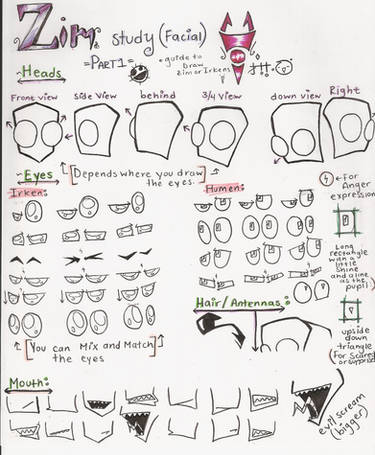 Zim study (Facial)
=PART1=
• guide to
Draw
Zim or Irkens
~Heads
Front view
side view
behind
3/4 view
down view
Right
~Eyes
[Depends where you draw
the eyes.]
Irken:
Humen:
←For
Anger
expression
Long
rectangle
with a
little
shine
and a line
as the
pupil
Hair/Antennas:
upside
down
triangle
(for scared
or surprised)
[You can Mix and Match
the eyes]
Mouth:
evil scream
(bigger)